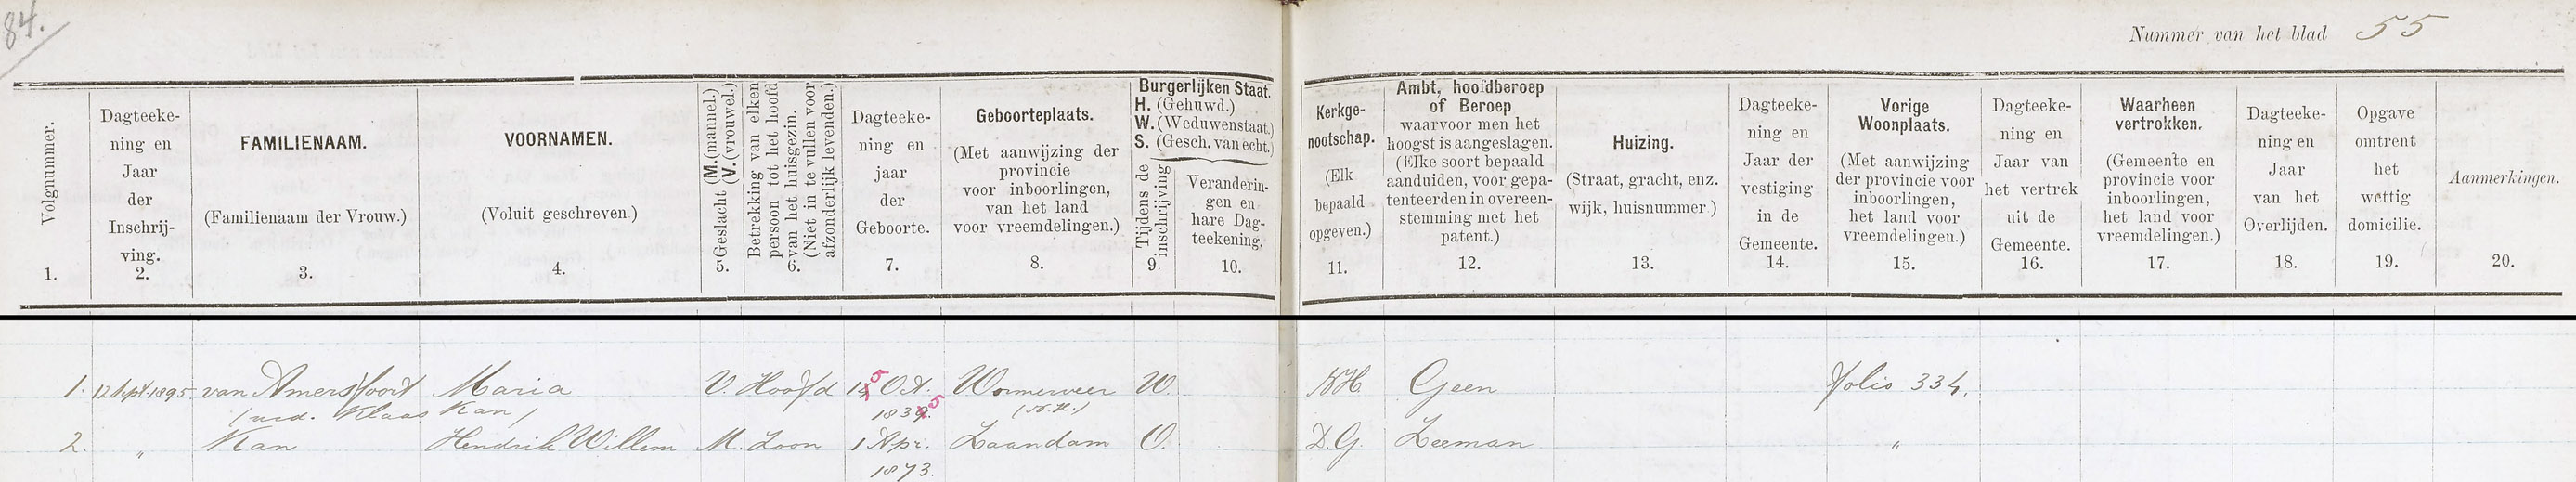 84.
Nummer van het blad 55
Volgnummer.
1.
Dagteeke-
ning en
Jaar
der
Inschrij-
ving.
2.
FAMILIENAAM.
(Familienaam der Vrouw.)
3.
VOORNAMEN.
(Voluit geschreven.)
4.
Geslacht (M.(mannel.)
(V.(vrouwel.)
5.
Betrekking van elken
persoon tot het hoofd
van het huisgezin.
(Niet in te vullen voor
afzonderlijk levenden.)
6.
Dagteeke-
ning en
jaar
der
Geboorte.
7.
Geboorteplaats.
(Met aanwijzing der
provincie
voor inboorlingen,
van het land
voor vreemdelingen.)
8.
Burgerlijken Staat.
H. (Gehuwd.)
W. (Weduwenstaat.)
S. (Gesch. van echt.)
Tijdens de
inschrijving
9.
Veranderin-
gen en
hare Dag-
teekening.
10.
Kerkge-
nootschap.
(Elk
bepaald
opgeven.)
11.
Ambt, hoofdberoep
of Beroep
waarvoor men het
hoogst is aangeslagen.
(Elke soort bepaald
aanduiden, voor gepa-
tenteerden in overeen-
stemming met het
patent.)
12.
Huizing.
(Straat, gracht, enz.
wijk, huisnummer.)
13.
Dagteeke-
ning en
Jaar der
vestiging
in de
Gemeente.
14.
Vorige
Woonplaats.
(Met aanwijzing
der provincie voor
inboorlingen,
het land voor
vreemdelingen.)
15.
Dagteeke-
ning en
Jaar van
het vertrek
uit de
Gemeente.
16.
Waarheen
vertrokken.
(Gemeente en
provincie voor
inboorlingen,
het land voor
vreemdelingen.)
17.
Dagteeke-
ning en
Jaar
van het
Overlijden.
18.
Opgave
omtrent
het
wettig
domicilie.
19.
Aanmerkingen.
20.
1. 12 Sept 1895 van Amersfoort Maria V. Hoofd Oct. Wormerveer W. NH Geen folio 334.
(wed. Klaas Kan) (N.H.)
2. " Kan Hendrik Willem M. Zoon 1 Apr. Zaandam O. D.G. Zeeman "
1873.